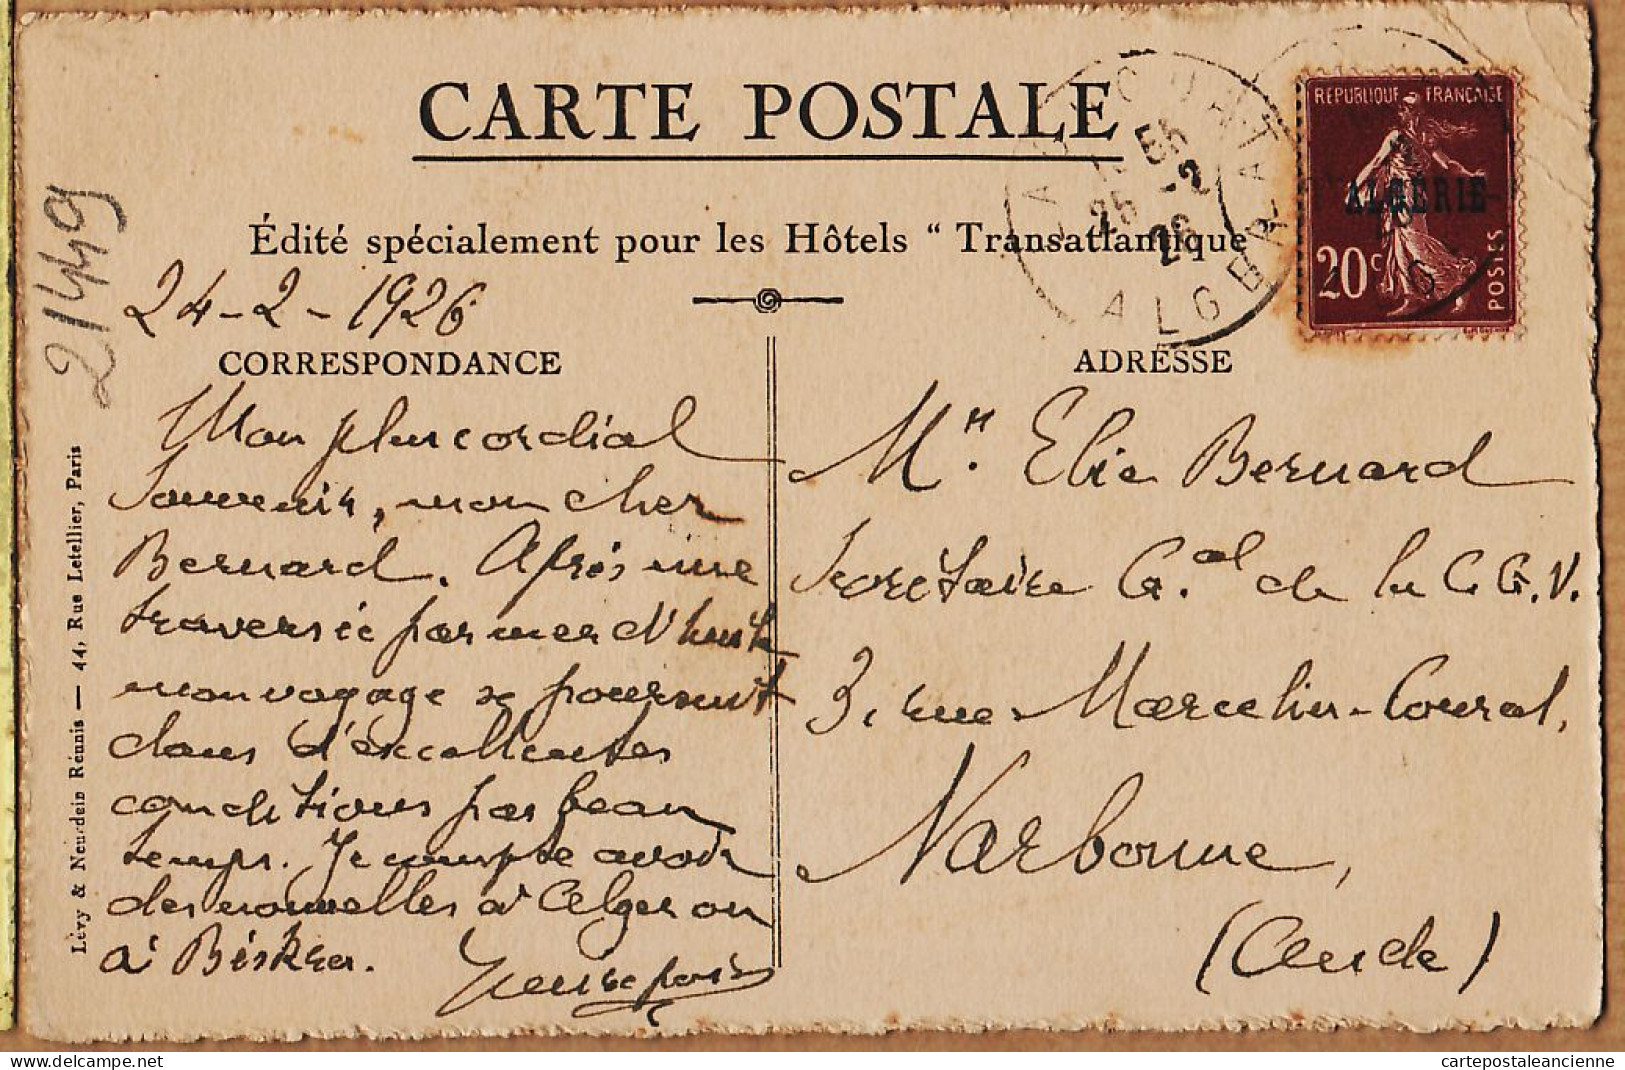 CARTE POSTALE
Édité spécialement pour les Hôtels “ Transatlantique
RÉPUBLIQUE FRANÇAISE
ALGÉRIE
20c
POSTES
25 -2
26
ALGER
21449
24-2-1926
CORRESPONDANCE
Mon plus cordial
Souvenir, mon cher
Bernard. Après une
traversée par mer d'huile
mon voyage se poursuit
dans d'excellentes
conditions par beau
temps. Je compte avoir
des nouvelles à Alger ou
à Biskra.
ADRESSE
Mr. Elie Bernard
Secrétaire Gal de la C.G.V.
3, rue Marcelin-Coural,
Narbonne,
(Aude)
Lévy & Neurdein Réunis — 44, Rue Letellier, Paris
cartepostaleancienne